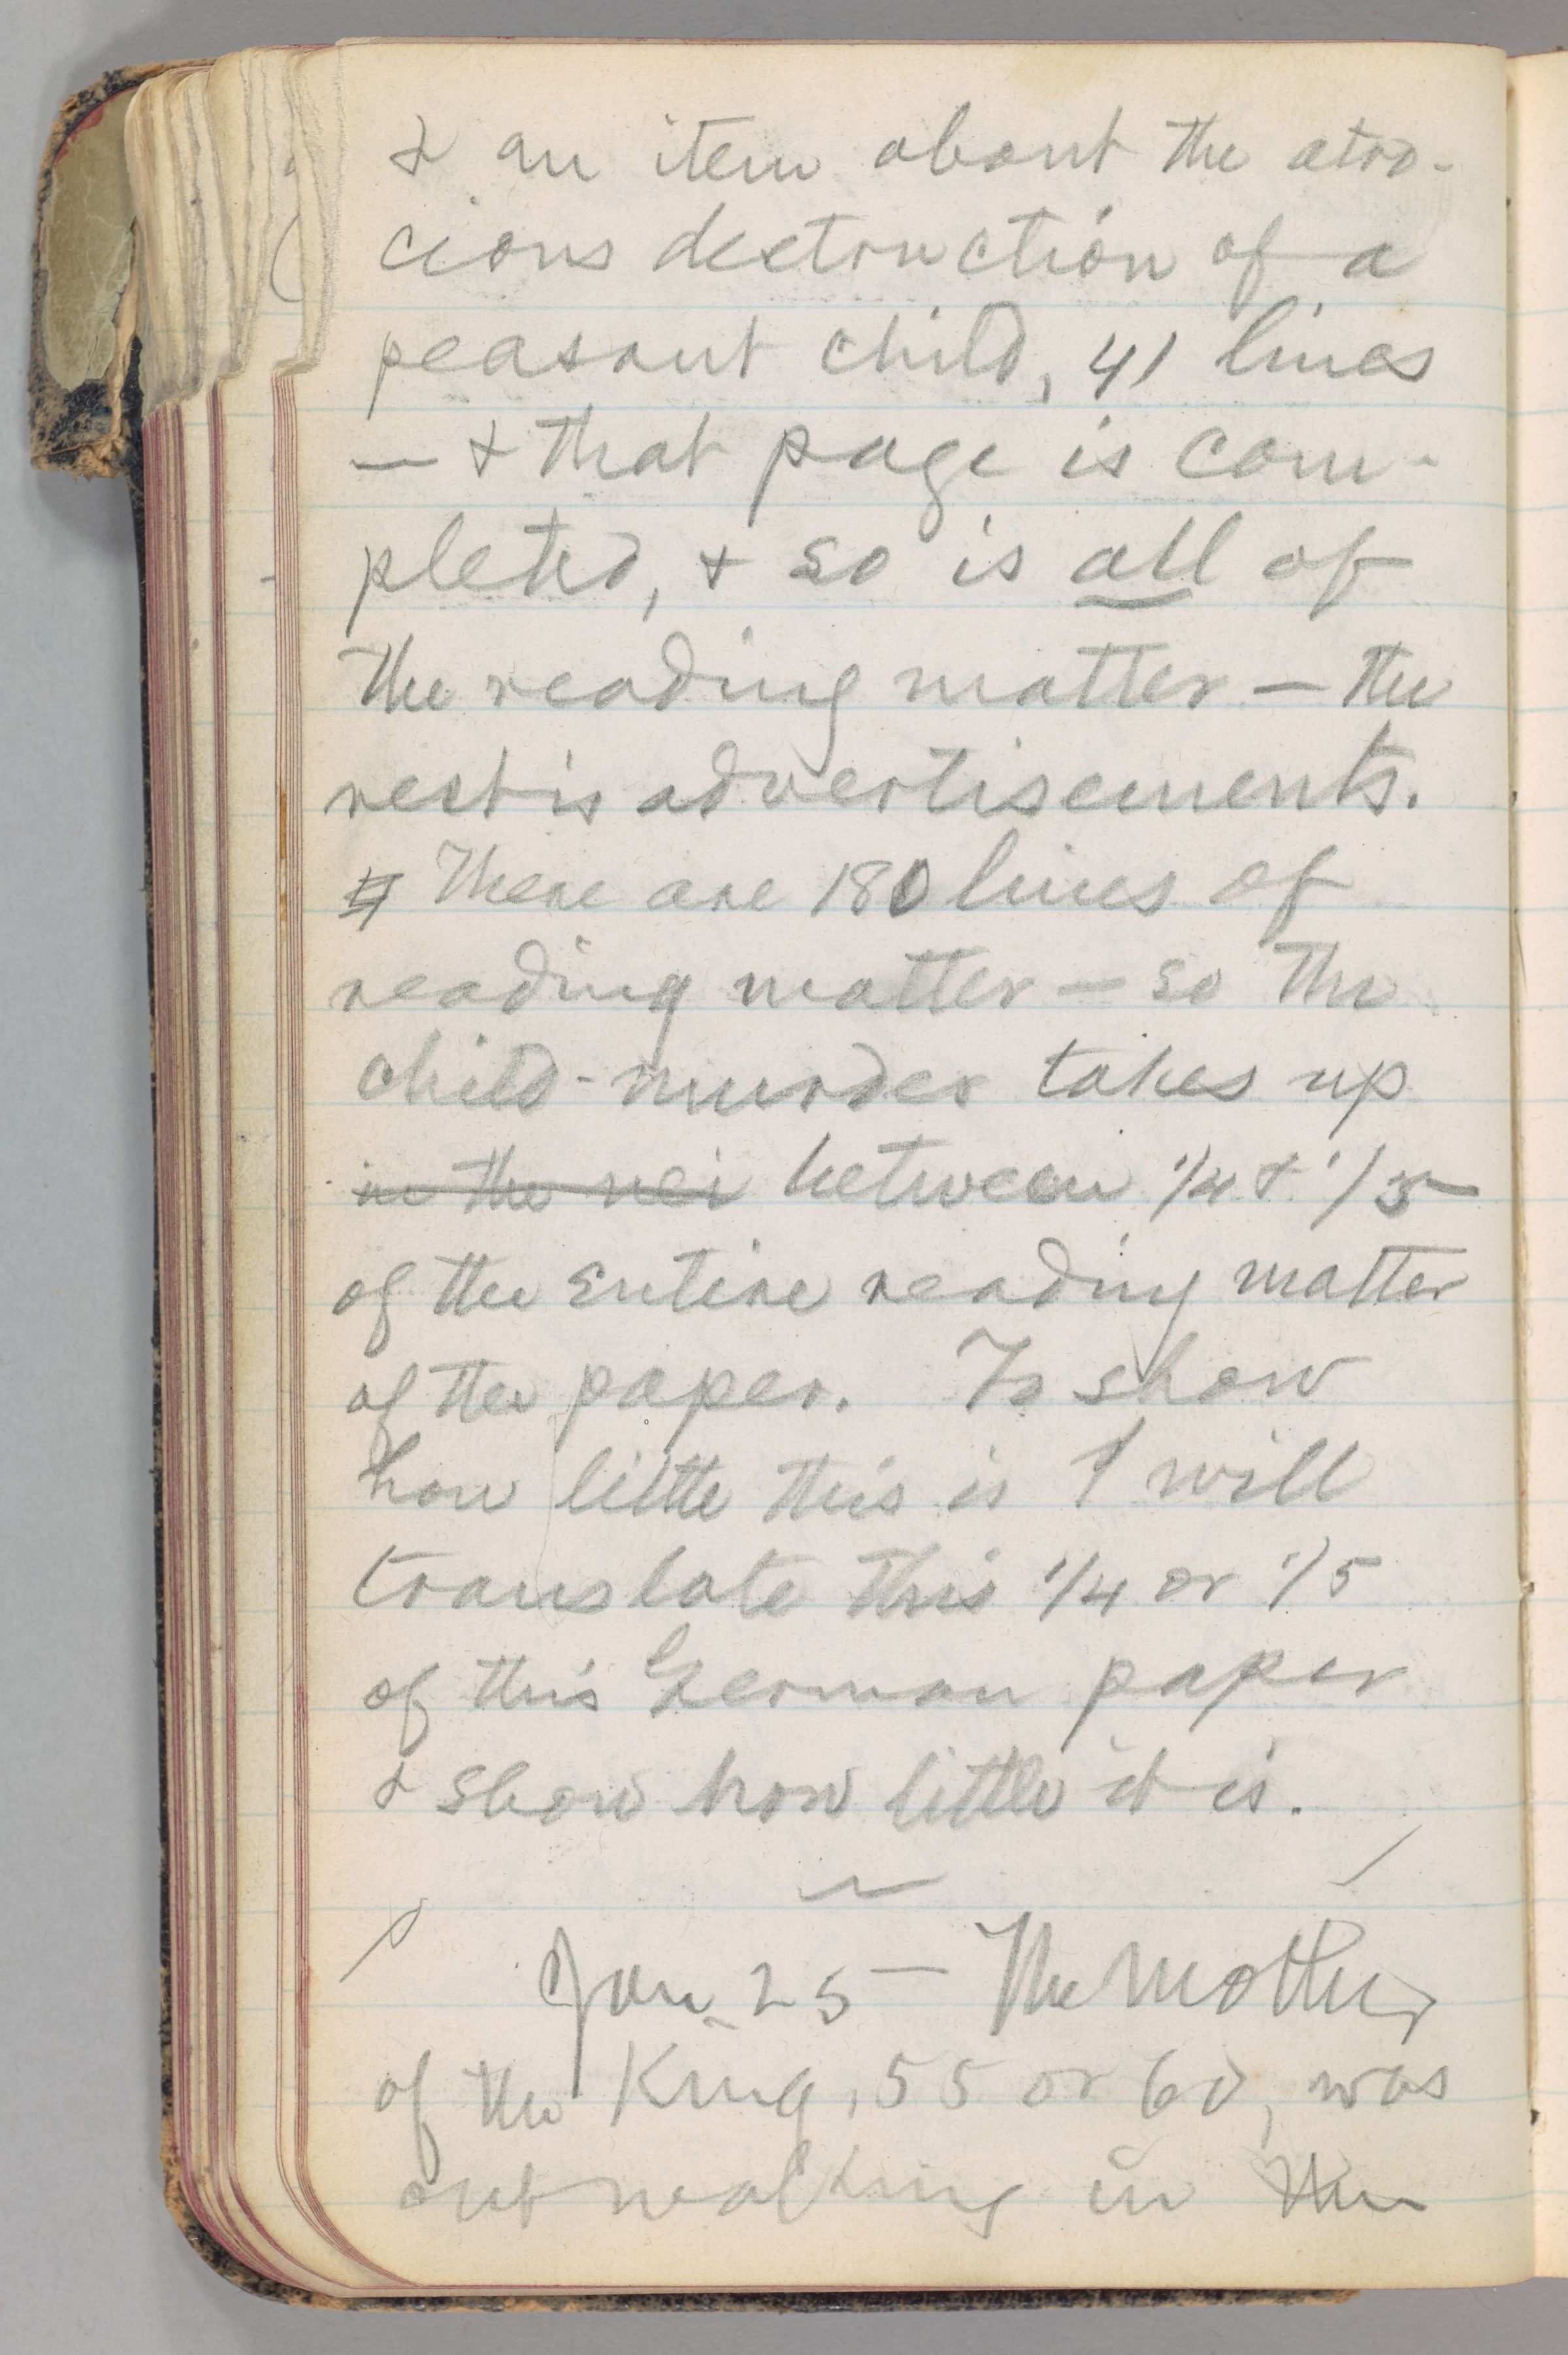 & an item about the atro-
cious destruction of a
peasant child, 41 lines
— & that page is com-
pleted, & so is all of
the reading matter — the
rest is advertisements.
There are 180 lines of
reading matter — so the
child-murder takes up
in the nei between 1/4 & 1/5
of the entire reading matter
of the paper. To show
how little this is I will
translate this 1/4 or 1/5
of this German paper
& show how little it is.
Jan. 25 — The Mother
of the King, 55 or 60, was
out walking in the